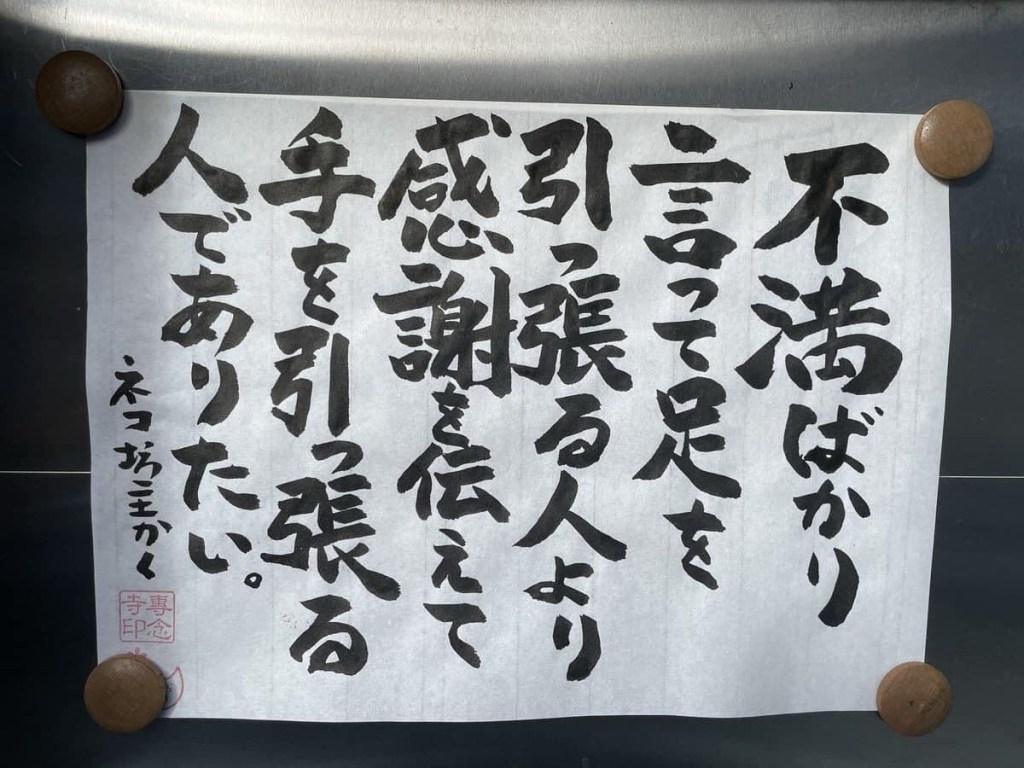 不満ばかり
言って足を
引っ張る人より
感謝を伝えて
手を引っ張る
人でありたい。
ネコ坊主かく
専念
寺印